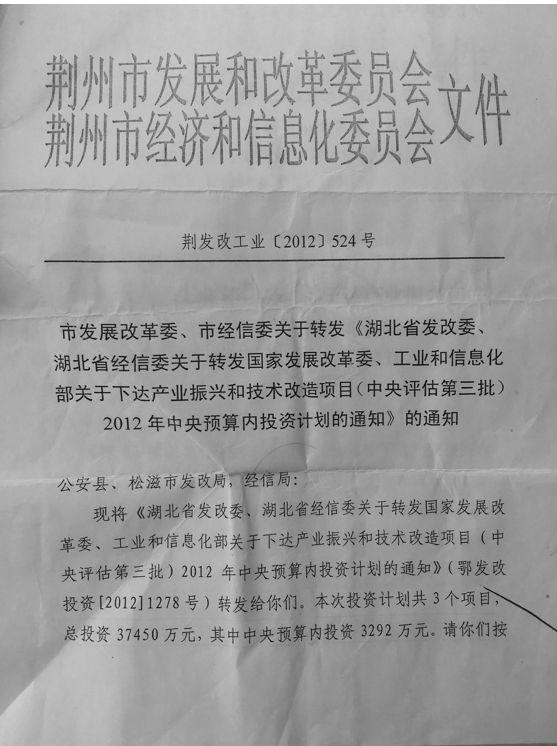 荆州市发展和改革委员会
荆州市经济和信息化委员会
文件
荆发改工业〔2012〕524 号
市发展改革委、市经信委关于转发《湖北省发改委、
湖北省经信委关于转发国家发展改革委、工业和信息化
部关于下达产业振兴和技术改造项目（中央评估第三批）
2012 年中央预算内投资计划的通知》的通知
公安县、松滋市发改局，经信局：
现将《湖北省发改委、湖北省经信委关于转发国家发展改
革委、工业和信息化部关于下达产业振兴和技术改造项目（中
央评估第三批）2012 年中央预算内投资计划的通知》（鄂发改
投资[2012]1278 号）转发给你们。本次投资计划共 3 个项目，
总投资 37450 万元，其中中央预算内投资 3292 万元。请你们按